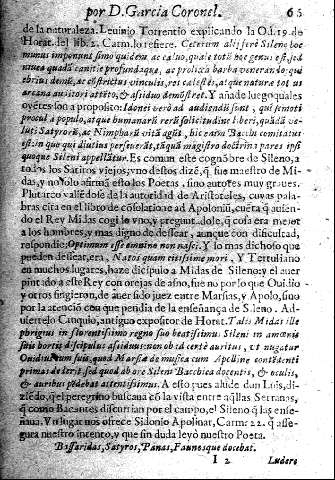 por D. Garcia Coronel. 65
de la naturaleza. Leuinio Torrentio explicando la Od. 19. de
Horat. del lib. 2. Carm. lo refiere. Ceterum alij ferè Sileno hoc
munus imponunt simo quidem, ac caluo, quale totũ hoc genus est, sed
canitie profundaque, ac prolixa barba venerando: qui
ebrius demũ, ac estrictus vinculis, res celestes, atque naturæ totius
arcana auditori attẽto, & assiduo demõstret. Y añade luego quales
oyẽtes son a proposito: Idonei verò ad audiendũ sunt, qui semoti
procul à populo, atque humanarũ rerũ solicitudine liberi, quãdã ve-
luti Satyrorũ, ac Nimpharũ vitã agũt, hic enim Bacchi comitatus
est: in quo qui diutius perseuerãt, tãquã magistro doctrina pares ipsi
quoque Sileni appellãtur. Es comun este cognõbre de Sileno, a
todos los Satiros viejos, vno destos dizẽ, q̃ fue maestro de Mi-
das, y no solo afirmã esto los Poetas, sino autores muy graues.
Plutarco valiẽdose de la autoridad de Aristoteles, cuyas palabras
cita en el libro de cõsolatione ad Apoloniũ, cuẽta q̃ auien-
do el Rey Midas cogido vno, y preguntãdole, q̃ cosa era mejor
a los hombres, y mas digno de dessear, aunque con dificultad,
respondiò: Optimum esse omnino non nasci. Y lo mas dichoso que
pueden dessear, era, Natos quam citissime mori. Y Tertuliano
en muchos lugares, haze dicipulo a Midas de Sileno: y el auer
pintado a este Rey con orejas de asno, fue no por lo que Ouidio
y otros fingieron, de auer sido juez entre Marsias, y Apolo, sino
por la atenciõ con que pendia de la enseñança de Sileno. Ad-
uiertelo Cruquio, antiguo expositor de Horat. Talis Midas ille
phrigius in florentissimo regno suo beatissimus Sileni in amœnissimis
hortis discipulus assiduus: non ob id certè auritus, vt nugatur
Ouidius suis, quod Marsia de musica cum Apolline contendenti
primas dederit, sed quod ab ore Sileni Bacchica docentis, & oculis,
& auribus pẽdebat attentissimus. A esto pues alude don Luis, di-
ziẽdo, q̃ el peregrino buscana cõ la vista entre aq̃llas Serranas,
q̃ como Bacantes discurrian por el campo, el Sileno q̃ las ense-
ñaua. Vn lugar nos ofrece Sidonio Apolinar, Carm. 22. q̃ asse-
gura nuestro intento, y que sin duda leyò nuestro Poeta.
Bassaridas, Satyros, Panas, Faunosque docebat.
I 2 Ludere